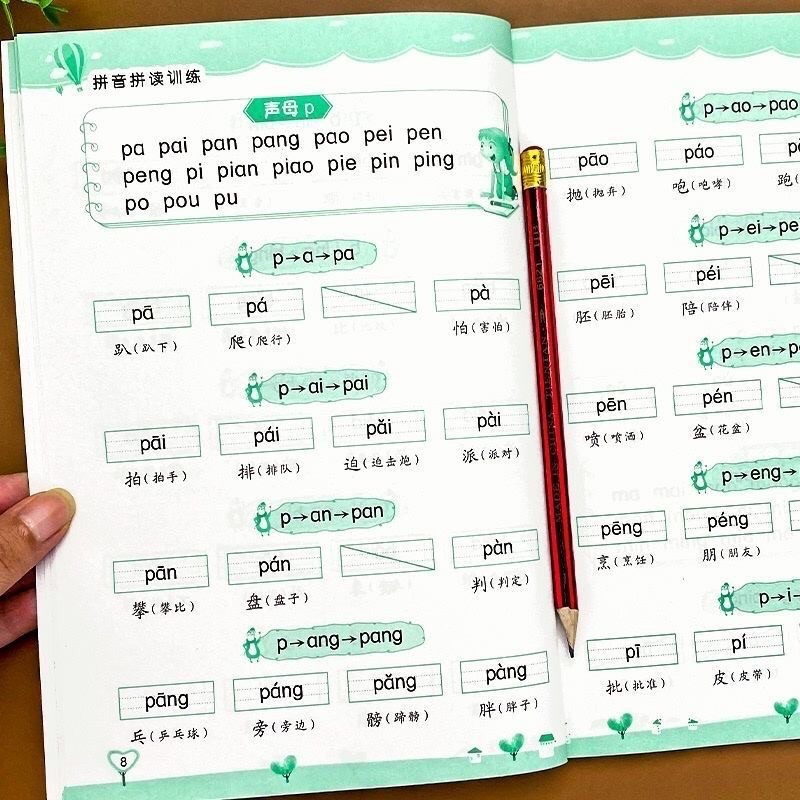 拼音拼读训练
声母 p
pa pai pan pang pao pei pen
peng pi pian piao pie pin ping
po pou pu
p→a→pa
pā pá pà
趴(趴下) 爬(爬行) 怕(害怕)
p→ai→pai
pāi pái pǎi pài
拍(拍手) 排(排队) 迫(迫击炮) 派(派对)
p→an→pan
pān pán pàn
攀(攀比) 盘(盘子) 判(判定)
p→ang→pang
pāng páng pǎng pàng
乓(乒乓球) 旁(旁边) 髈(蹄髈) 胖(胖子)
8
p→ao→pao
pāo páo
抛(抛弃) 咆(咆哮) 跑
p→ei→pe
pēi péi
胚(胚胎) 陪(陪伴)
p→en→p
pēn pén
喷(喷洒) 盆(花盆)
p→eng→
pēng péng
烹(烹饪) 朋(朋友)
p→i→
pī pí
批(批准) 皮(皮带)
MADE IN CHINA